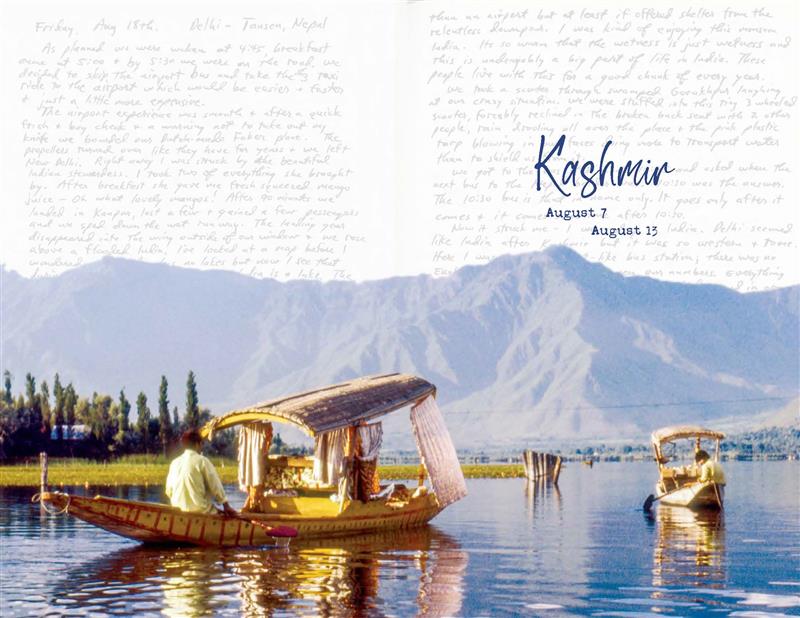 Friday, Aug 18th. Delhi - Tansen, Nepal
As planned we were woken at 4:45, breakfast
came at 5:00 & by 5:30 we were on the road. We
decided to skip the airport bus and take the taxi
ride to the airport which would be easier & faster
& just a little more expensive.
The airport experience was smooth & after a quick
frisk & bag check & a warning not to take out my
knife we boarded our Patna bound Fokker plane. The
propellers turned over like they have for years & we left
New Delhi. Right away I was struck by the beautiful
Indian stewardess. I took two of everything she brought
by. After breakfast she gave me fresh squeezed mango
juice - Oh what lovely mangos! After 40 minutes we
landed in Kanpur, lost a few & gained a few passengers
and we sped down the wet run way. The landing gear
disappeared into the wing outside of our window & we rose
above a flooded India. I've looked at a map before &
wondered no lakes but now I see that
is a lake. The
than an airport but at least it offered shelter from the
relentless downpour. I was kind of enjoying this monsoon
India. Its so warm that the wetness is just wetness and
this is undeniably a big part of life in India. These
people live with this for a good chunk of every year.
We took a scooter through swamped Gorakhpur laughing
at our crazy situation. We were stuffed into this tiny 3 wheeled
scooter, forcibly reclined in the broken back seat with 2 other
people, rain all over the place & the pink plastic
tarp blowing in more to transport water
than to shield
we got to the and asked where the
next bus to the 10:30 was the answer.
The 10:30 bus is the one only. It goes only after it
comes & it comes after 10:30.
Now it struck me - I India. Delhi seemed
like India after Kashmir but it was so western & tame.
Here I was like bus station; there was no
our numbers. Everything
Kashmir
August 7
August 13